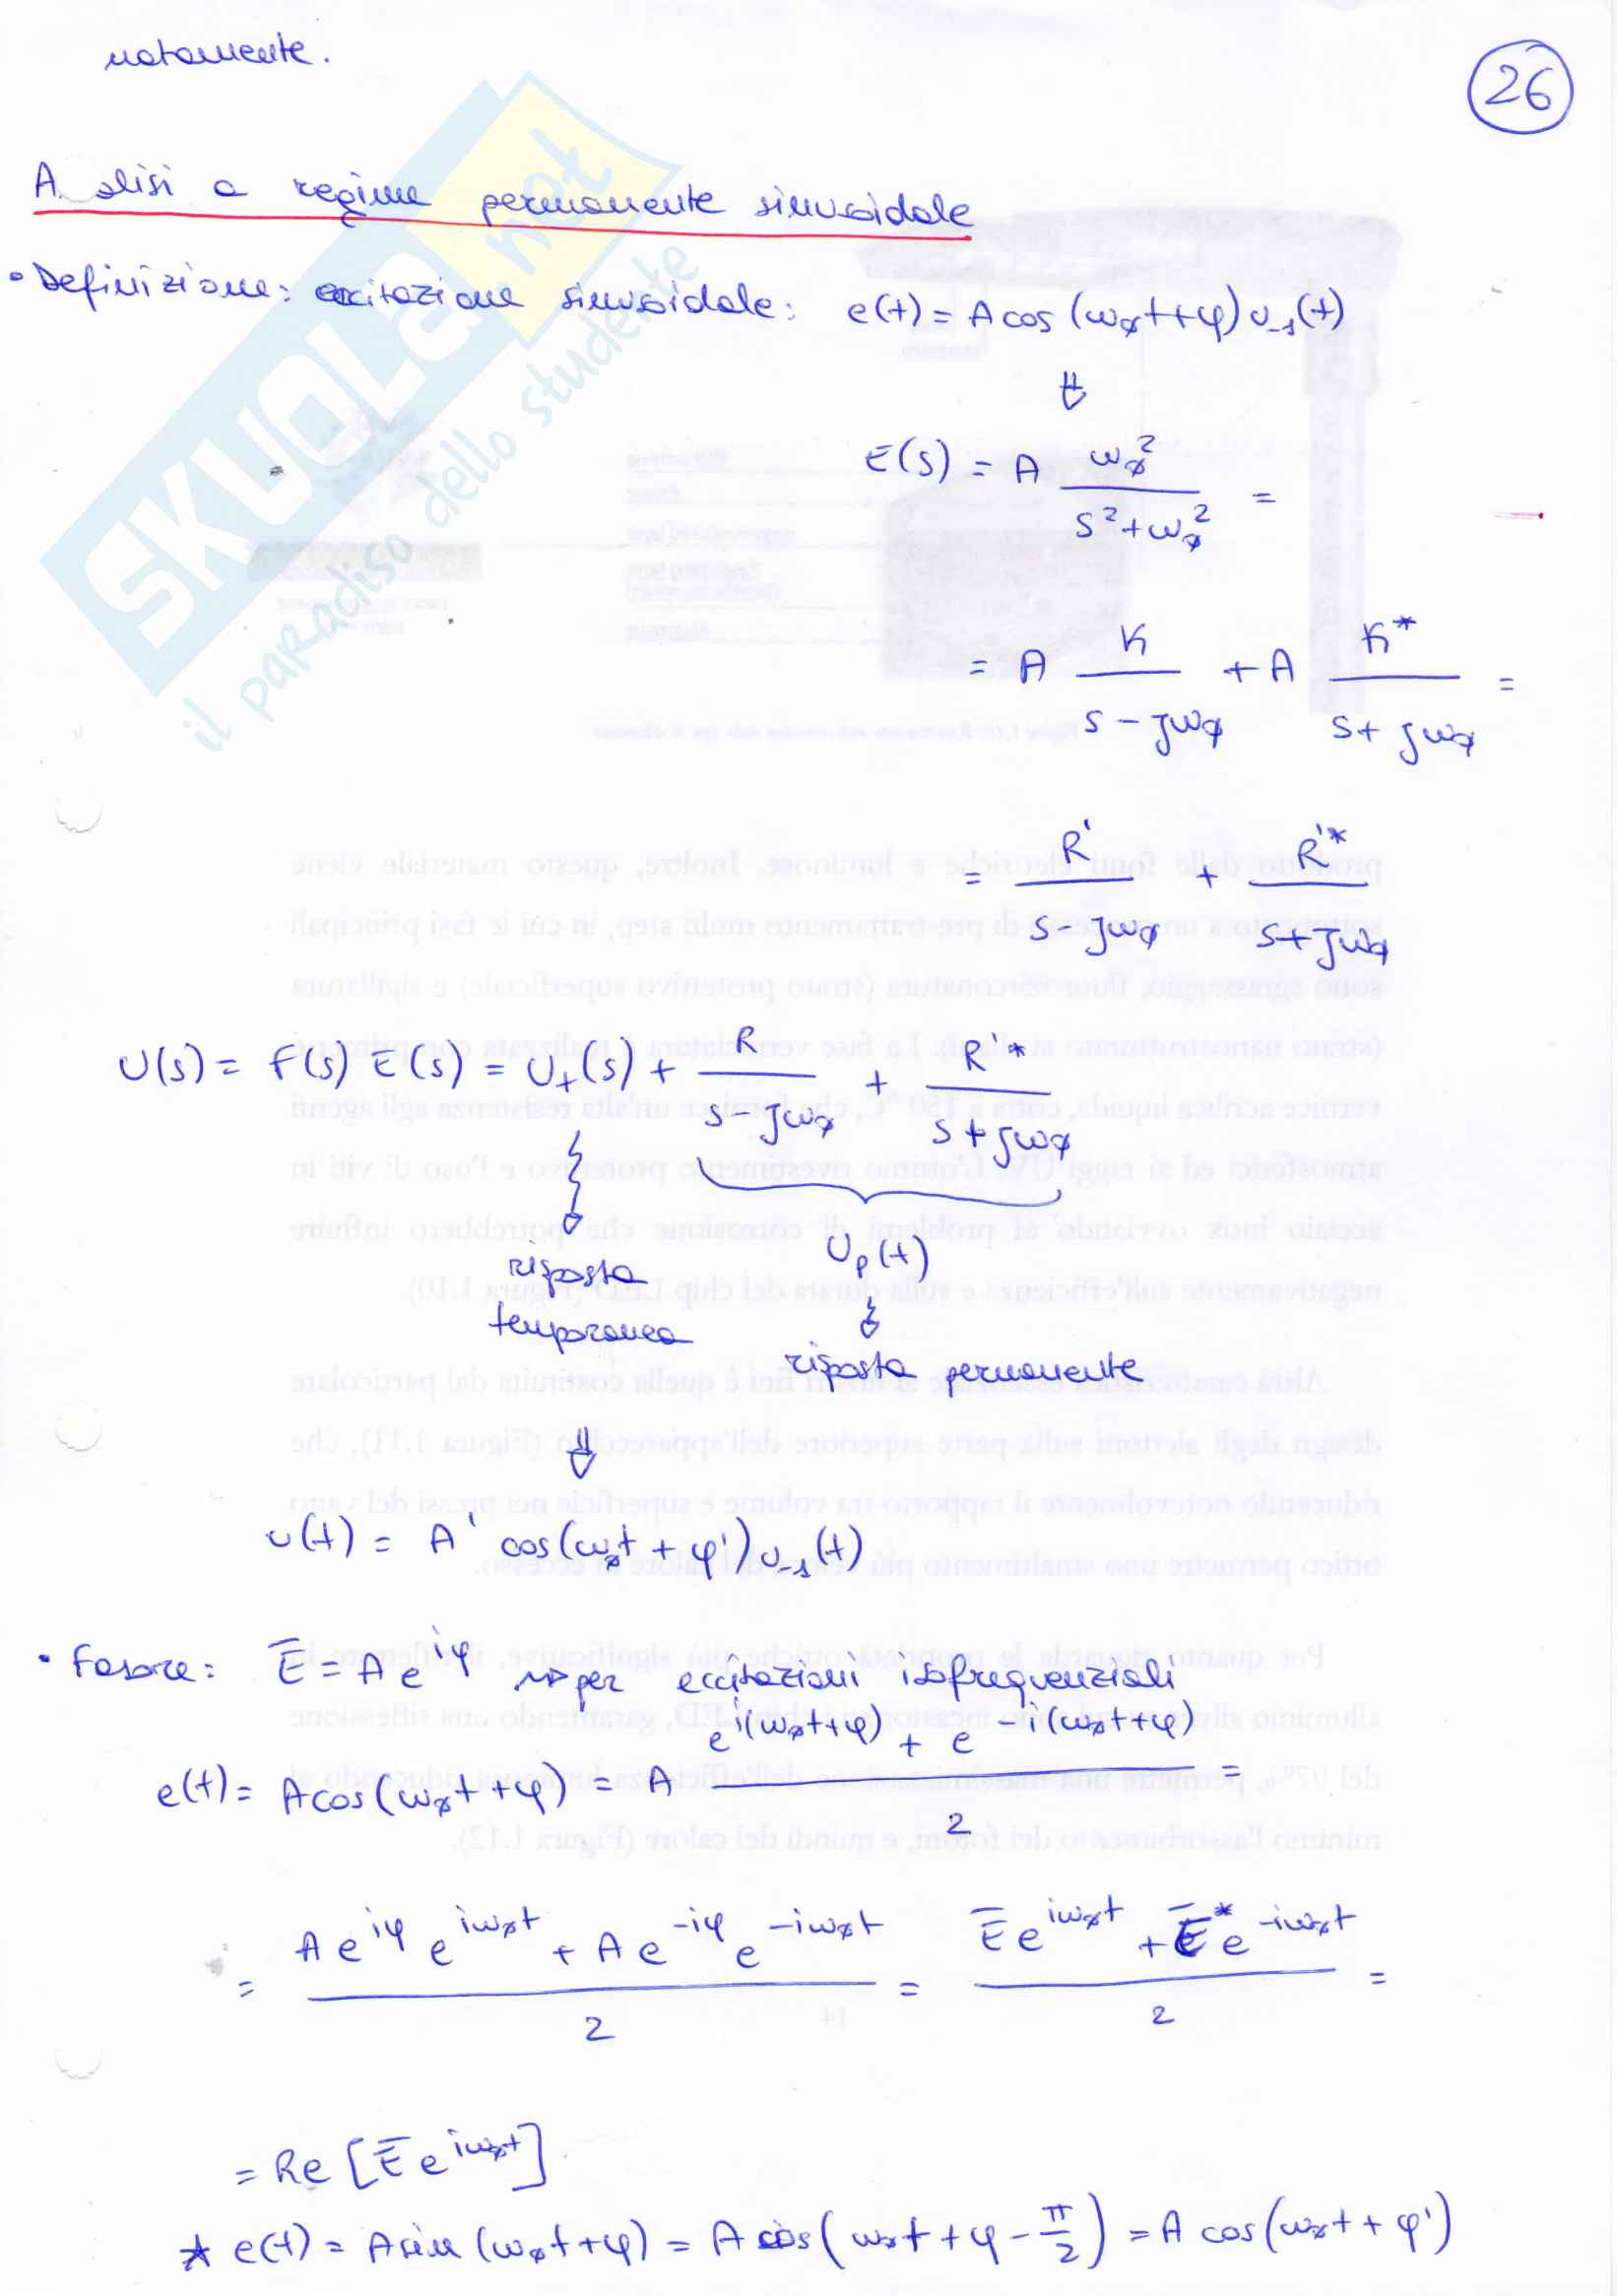 notamente.
26
Analisi a regime permanente sinusoidale
• Definizione: eccitazione sinusoidale: e(t) = A cos (ω₀t+φ) u₋₁(t)
⇓
E(s) = A ω₀² / (s²+ω₀²) =
= A K / (s-jω₀) + A K* / (s+jω₀) =
= R' / (s-jω₀) + R'* / (s+jω₀)
U(s) = F(s) E(s) = U_t(s) + R / (s-jω₀) + R'* / (s+jω₀)
risposta temporanea
U_p(t)
risposta permanente
⇓
u(t) = A' cos(ω₀t + φ') u₋₁(t)
• Fasore: Ē = A e^{iφ} ⇝ per eccitazioni isofrequenziali
e(t) = A cos(ω₀t+φ) = A (e^{i(ω₀t+φ)} + e^{-i(ω₀t+φ)}) / 2 =
= (A e^{iφ} e^{iω₀t} + A e^{-iφ} e^{-iω₀t}) / 2 = (Ē e^{iω₀t} + Ē* e^{-iω₀t}) / 2 =
= Re [Ē e^{iω₀t}]
* e(t) = A sin (ω₀t+φ) = A cos(ω₀t + φ - π/2) = A cos(ω₀t + φ')
SKUOLA.net
il paradiso dello studente